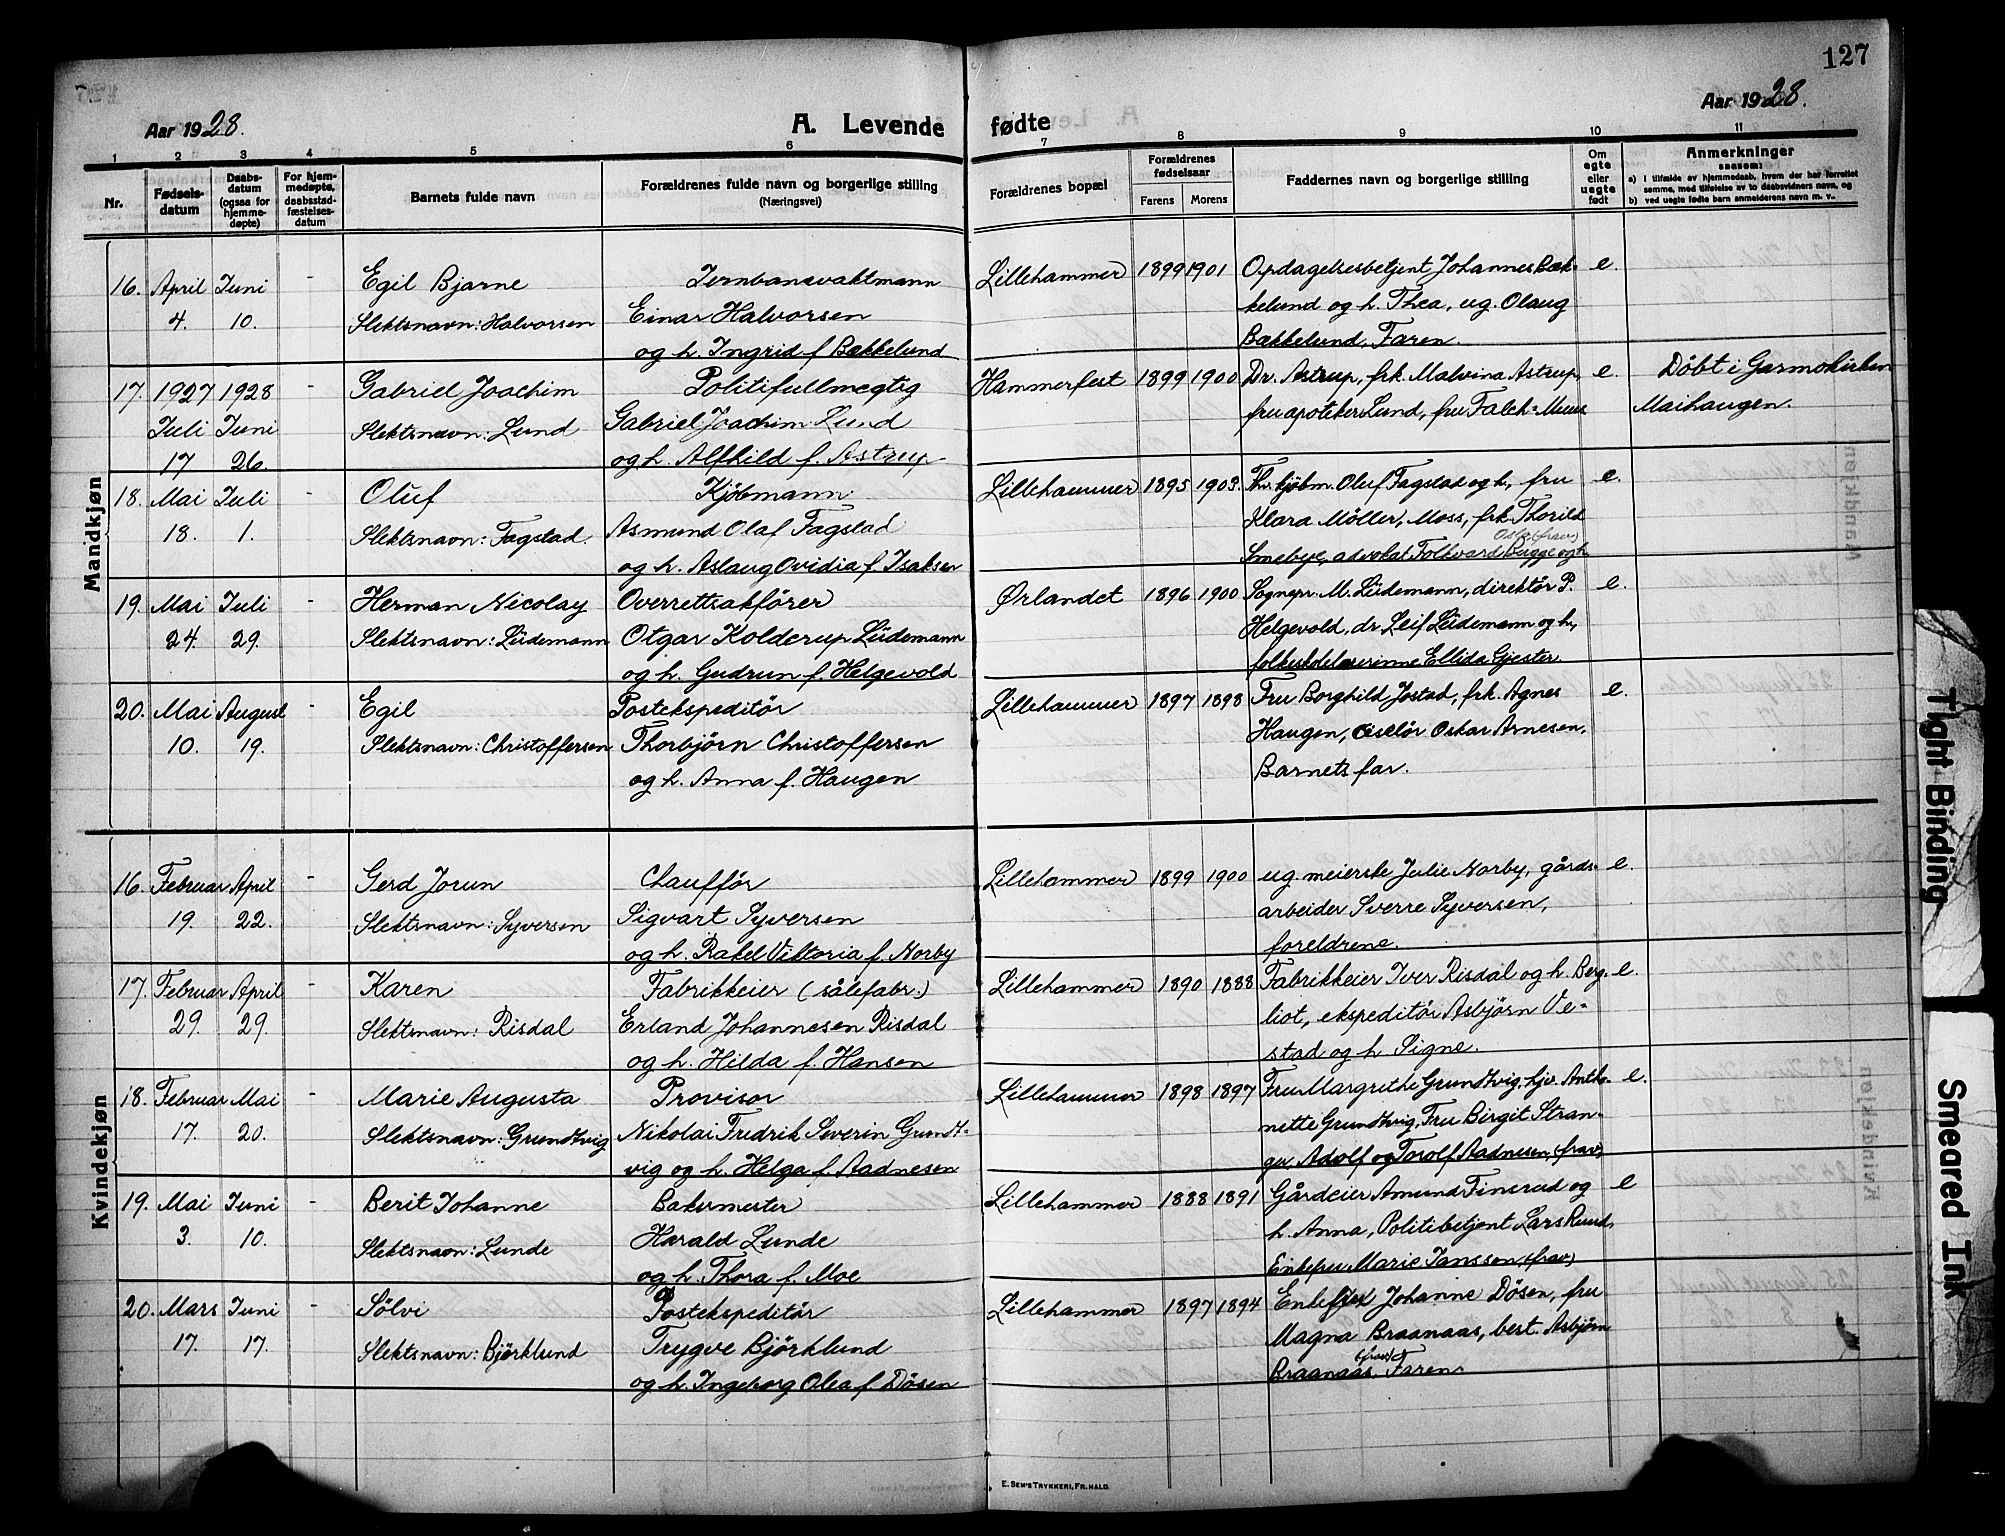 127
Aar 1928.
A. Levende fødte
Aar 1928.
1 2 3 4 5 6 7 8 9 10 11
Nr.
Fødsels-
datum
Daabs-
datum
(ogsaa for
hjemme-
døpte)
For hjem-
medøpte,
daabsstad-
fæstelses-
datum
Barnets fulde navn
Forældrenes fulde navn og borgerlige stilling
(Næringsvei)
Forældrenes bopæl
Forældrenes
fødselsaar
Farens Morens
Faddernes navn og borgerlige stilling
Om
egte
eller
uegte
født
Anmerkninger
saasom:
a) i tilfælde av hjemmedaab, hvem der har forrettet
samme, med tilføielse av to daabsvidners navn, og
b) ved uegte fødte barn anmelderens navn m. v.
Mandkjøn
16. April Juni - Egil Bjarne Jernbanevaktmann Lillehammer 1899 1901 Opdagelsesbetjent Johannes Bæk- e.
4. 10. Slektsnavn: Halvorsen Einar Halvorsen kelund og h. Thea, ug. Olaug
og h. Ingrid f. Bækkelund Bækkelund, Faren.
17. 1927 1928 - Gabriel Joachim Politifullmegtig Hammerfest 1899 1900 Dr. Astrup, frk. Malvina Astrup, e. Døbt i Garmokirken
Juli Juni Slektsnavn: Lund Gabriel Joachim Lund fru apoteker Lund, fru Falck-Muus Maihaugen.
17 26. og h. Alfhild f. Astrup
18. Mai Juli - Oluf Kjøbmann Lillehammer 1895 1903. Thv. kjøbm. Oluf Fagstad og h, fru e.
18. 1. Slektsnavn: Fagstad. Asmund Olaf Fagstad Klara Møller, Moss, frk. Thorild
Oslo (frav)
og h. Aslaug Ovidia f. Isaksen Smebye, advokat Folkvard Bugge og h
19. Mai Juli - Herman Nicolay Overrettsakfører Ørlandet 1896 1900 Sognepr. M. Lüdemann, direktør P. e.
24. 29. Slektsnavn: Lüdemann Otgar Kolderup Lüdemann Helgevold, dr. Leif Lüdemann og h,
og h. Gudrun f. Helgevold folkeskolelærerinne Ellida Gjester
20. Mai August - Egil Postekspeditør Lillehammer 1897 1898 Fru Borghild Jostad, frk. Agnes e.
10. 19. Slektsnavn: Christoffersen Thorbjørn Christoffersen Haugen, ciselør Oskar Arnesen,
og h. Anna f. Haugen Barnets far.
Kvindekjøn
16. Februar April - Gerd Jorun Chauffør Lillehammer 1899 1900 ug. meierske Julie Norby, gårds- e.
19. 22. Slektsnavn: Syversen Sigvart Syversen arbeider Sverre Syversen,
og h. Rakel Viktoria f. Norby foreldrene.
17. Februar April - Karen Fabrikkeier (sålefabr.) Lillehammer 1890 1888 Fabrikkeier Iver Risdal og h. Berg- e.
29. 29. Slektsnavn: Risdal Erland Johannesen Risdal liot, ekspeditør Asbjørn Ve-
og h. Hilda f. Hansen stad og h Signe.
18. Februar Mai - Marie Augusta Provisor Lillehammer 1898 1897 Fru Margrethe Grundtvig, hjv. Antho- e.
17. 20. Slektsnavn: Grundtvig Nikolai Fredrik Severin Grundt- nette Grundtvig, Fru Birgit Stran-
vig og h. Helga f. Aadnesen ger, Adolf og Torolf Aadnesen, (frav)
19. Mai Juni - Berit Johanne Bakermester Lillehammer 1888 1891 Gårdeier Amund Finerud og e
3. 10. Slektsnavn: Lunde Harald Lunde h. Anna, Politibetjent Lars Ruud,
og h. Thora f. Moe Enkefru Marie Janssen, (frav)
20. Mars Juni - Sølvi Postekspeditør Lillehammer 1897 1894 Johanne Døsen, fru
17. 17. Slektsnavn: Bjørklund Trygve Bjørklund Magna Braanaas, best. Asbjørn
(frav)
og h. Ingeborg Olea f. Døsen Braanaas, Faren
E. SEM'S TRYKKERI, FR.HALD.
Tight Binding
Smeared Ink